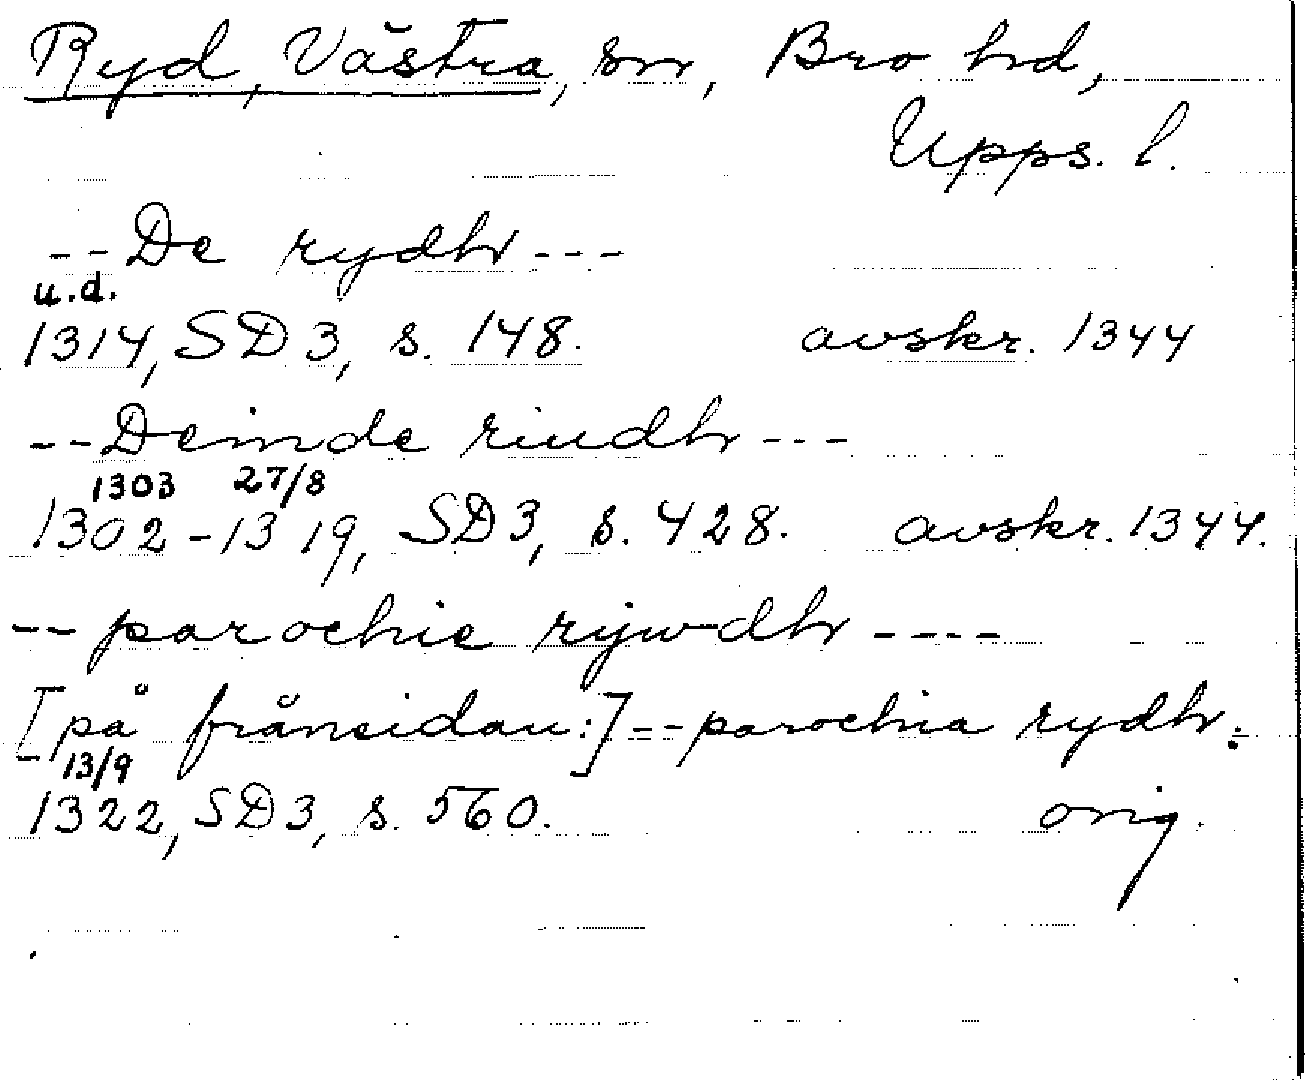 Ryd, Västra, sn, Bro hd,
Upps. l.
--De rydhr---
u.d.
1314, SD 3, s. 148. avskr. 1344
--Deinde riudhr---
1303 27/8
1302-1319, SD3, s. 428. avskr. 1344.
--parochie rijwdhr----
[på frånsidan:]--parochia rydhr.
13/9
1322, SD3, s. 560. orig.